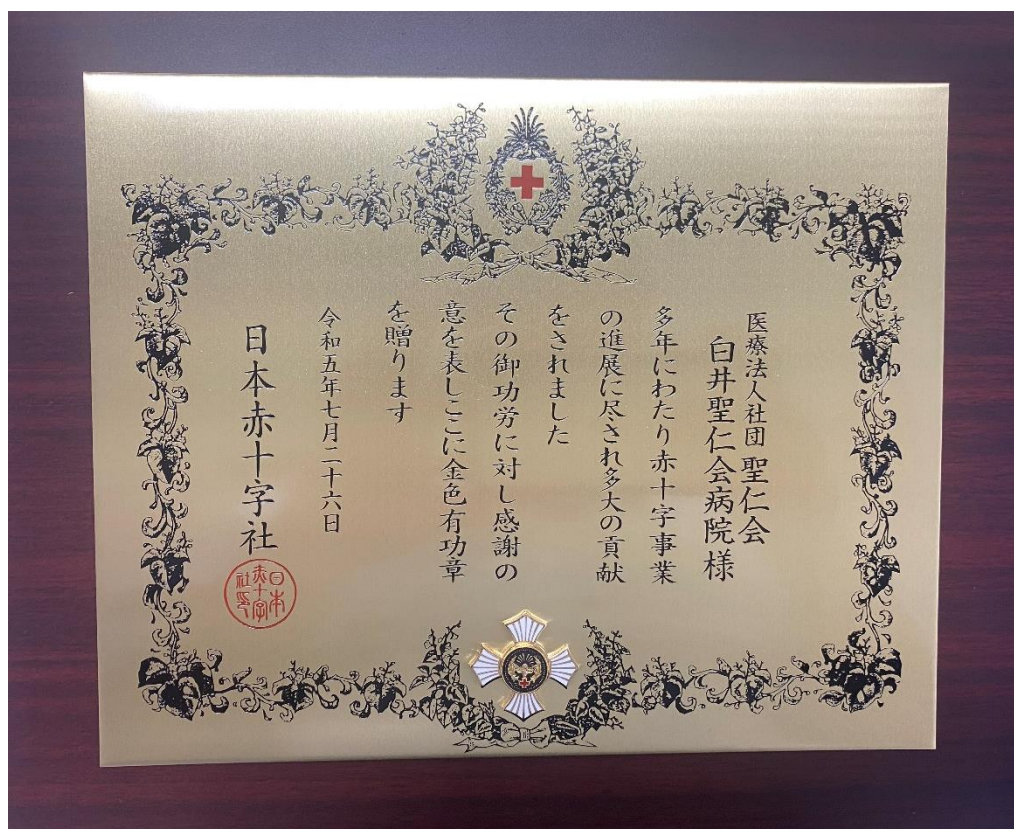 医療法人社団 聖仁会
白井聖仁会病院様
多年にわたり赤十字事業
の進展に尽され多大の貢献
をされました
その御功労に対し感謝の
意を表しここに金色有功章
を贈ります
令和五年七月二十六日
日本赤十字社
日本
赤十字
社印